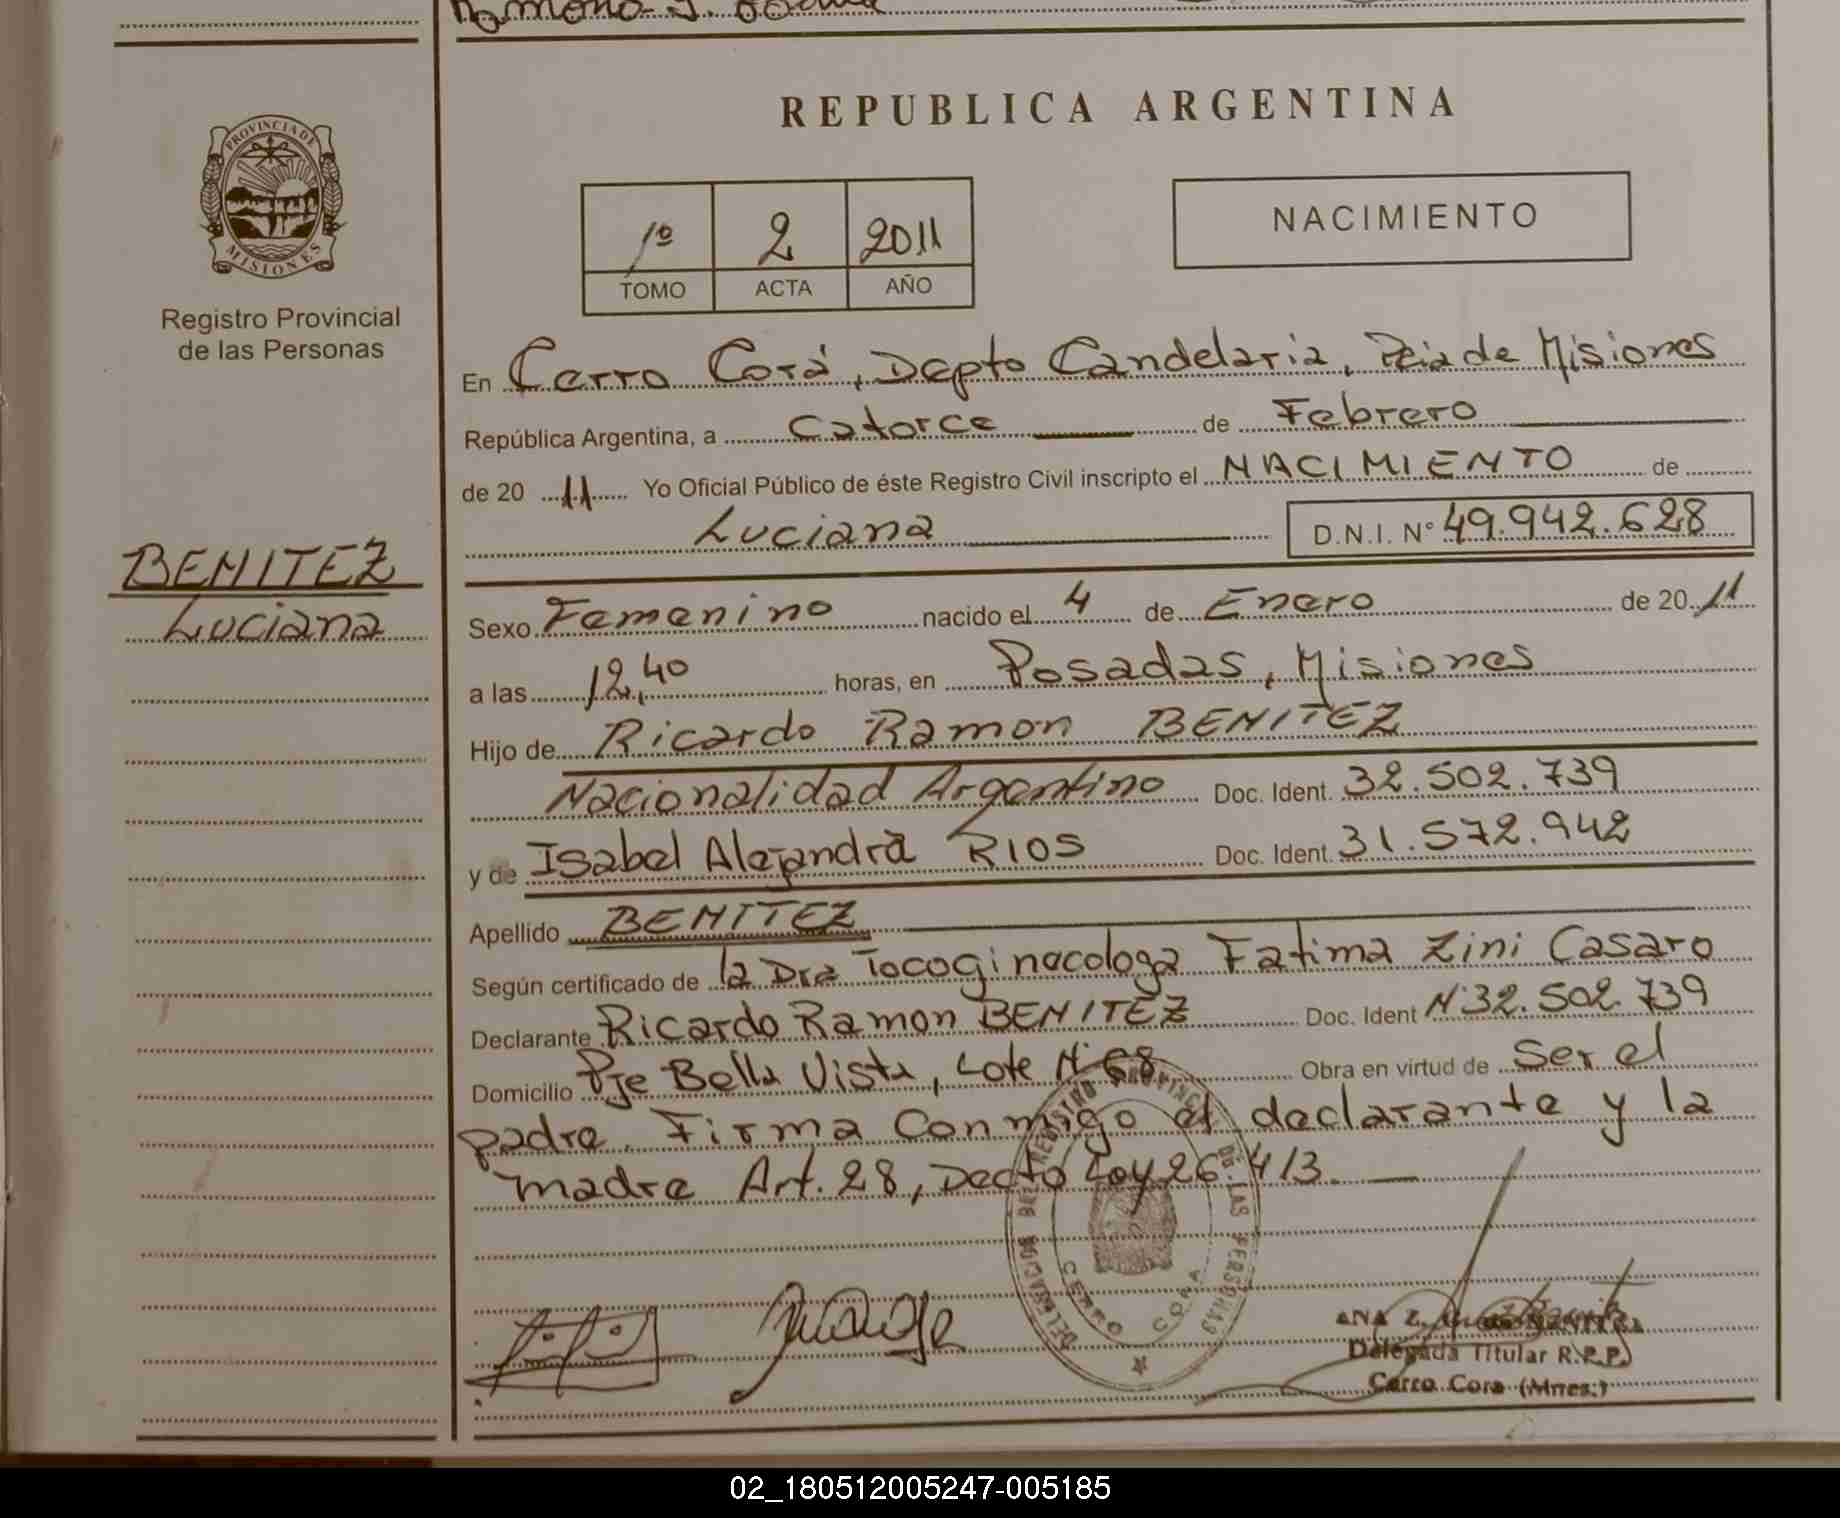 PROVINCIA DE
MISIONES
Registro Provincial
de las Personas
BENITEZ
Luciana
REPUBLICA ARGENTINA
1º 2 2011
TOMO ACTA AÑO
NACIMIENTO
En Cerro Corá, Depto Candelaria, Pcia de Misiones
República Argentina, a catorce de Febrero
de 20 11 Yo Oficial Público de éste Registro Civil inscripto el NACIMIENTO de
Luciana D.N.I. Nº 49.942.628
Sexo Femenino nacido el 4 de Enero de 20 11
a las 12,40 horas, en Posadas, Misiones
Hijo de Ricardo Ramon BENITEZ
Nacionalidad Argentino Doc. Ident. 32.502.739
y de Isabel Alejandra RIOS Doc. Ident. 31.572.942
Apellido BENITEZ
Según certificado de la Dra Tocoginecologa Fatima Zini Casaro
Declarante Ricardo Ramon BENITEZ Doc. Ident Nº 32.502.739
Domicilio Pje Bella Vista, Lote Nº 68 Obra en virtud de Ser el
padre. Firma Conmigo el declarante y la
madre Art. 28, Decto Ley 26.413.
REGISTRO PROVINCIAL DE LAS PERSONAS
CERRO CORA
ANA Z.
Delegada Titular R.P.P.
Cerro Cora (Mnes.)
02_180512005247-005185